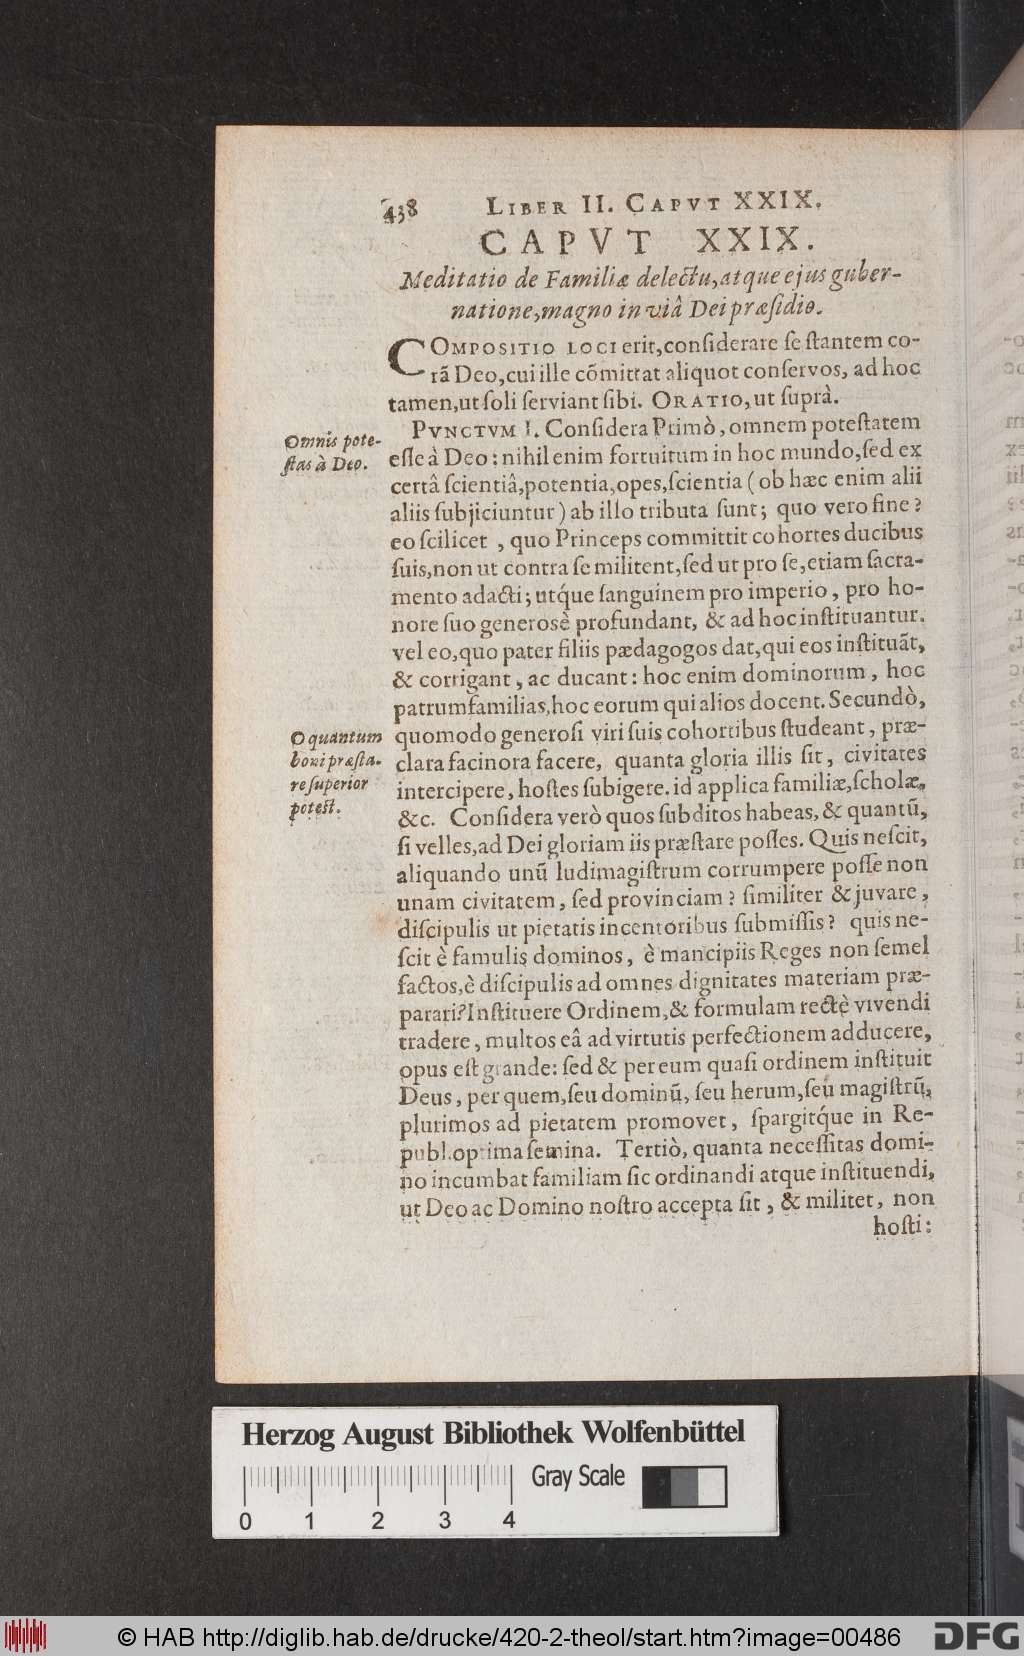 438 LIBER II. CAPVT XXIX.
CAPVT XXIX.
Meditatio de Familiæ delectu, atque ejus guber-
natione, magno in viâ Dei præsidio.
COMPOSITIO LOCI erit, considerare se stantem co-
rã Deo, cui ille cõmittat aliquot conservos, ad hoc
tamen, ut soli serviant sibi. ORATIO, ut suprà.
Omnis pote-
stas à Deo.
PVNCTVM I. Considera Primò, omnem potestatem
esse à Deo: nihil enim fortuitum in hoc mundo, sed ex
certâ scientiâ, potentia, opes, scientia (ob hæc enim alii
aliis subjiciuntur) ab illo tributa sunt; quo vero fine?
eo scilicet, quo Princeps committit cohortes ducibus
suis, non ut contra se militent, sed ut pro se, etiam sacra-
mento adacti; utq́ue sanguinem pro imperio, pro ho-
nore suo generosè profundant, & ad hoc instituantur.
vel eo, quo pater filiis pædagogos dat, qui eos instituãt,
& corrigant, ac ducant: hoc enim dominorum, hoc
patrumfamilias, hoc eorum qui alios docent. Secundò,
O quantum
boni præsta-
re superior
potest.
quomodo generosi viri suis cohortibus studeant, præ-
clara facinora facere, quanta gloria illis sit, civitates
intercipere, hostes subigere. id applica familiæ, scholæ,
&c. Considera verò quos subditos habeas, & quantũ,
si velles, ad Dei gloriam iis præstare posses. Quis nescit,
aliquando unũ ludimagistrum corrumpere posse non
unam civitatem, sed provinciam? similiter & juvare,
discipulis ut pietatis incentoribus submissis? quis ne-
scit è famulis dominos, è mancipiis Reges non semel
factos, è discipulis ad omnes dignitates materiam præ-
parari? Instituere Ordinem, & formulam rectè vivendi
tradere, multos eâ ad virtutis perfectionem adducere,
opus est grande: sed & per eum quasi ordinem instituit
Deus, per quem, seu dominũ, seu herum, seu magistrũ,
plurimos ad pietatem promovet, spargitq́ue in Re-
publ. optima semina. Tertiò, quanta necessitas domi-
no incumbat familiam sic ordinandi atque instituendi,
ut Deo ac Domino nostro accepta sit, & militet, non
hosti:
Herzog August Bibliothek Wolfenbüttel
Gray Scale
0 1 2 3 4
© HAB http://diglib.hab.de/drucke/420-2-theol/start.htm?image=00486
DFG